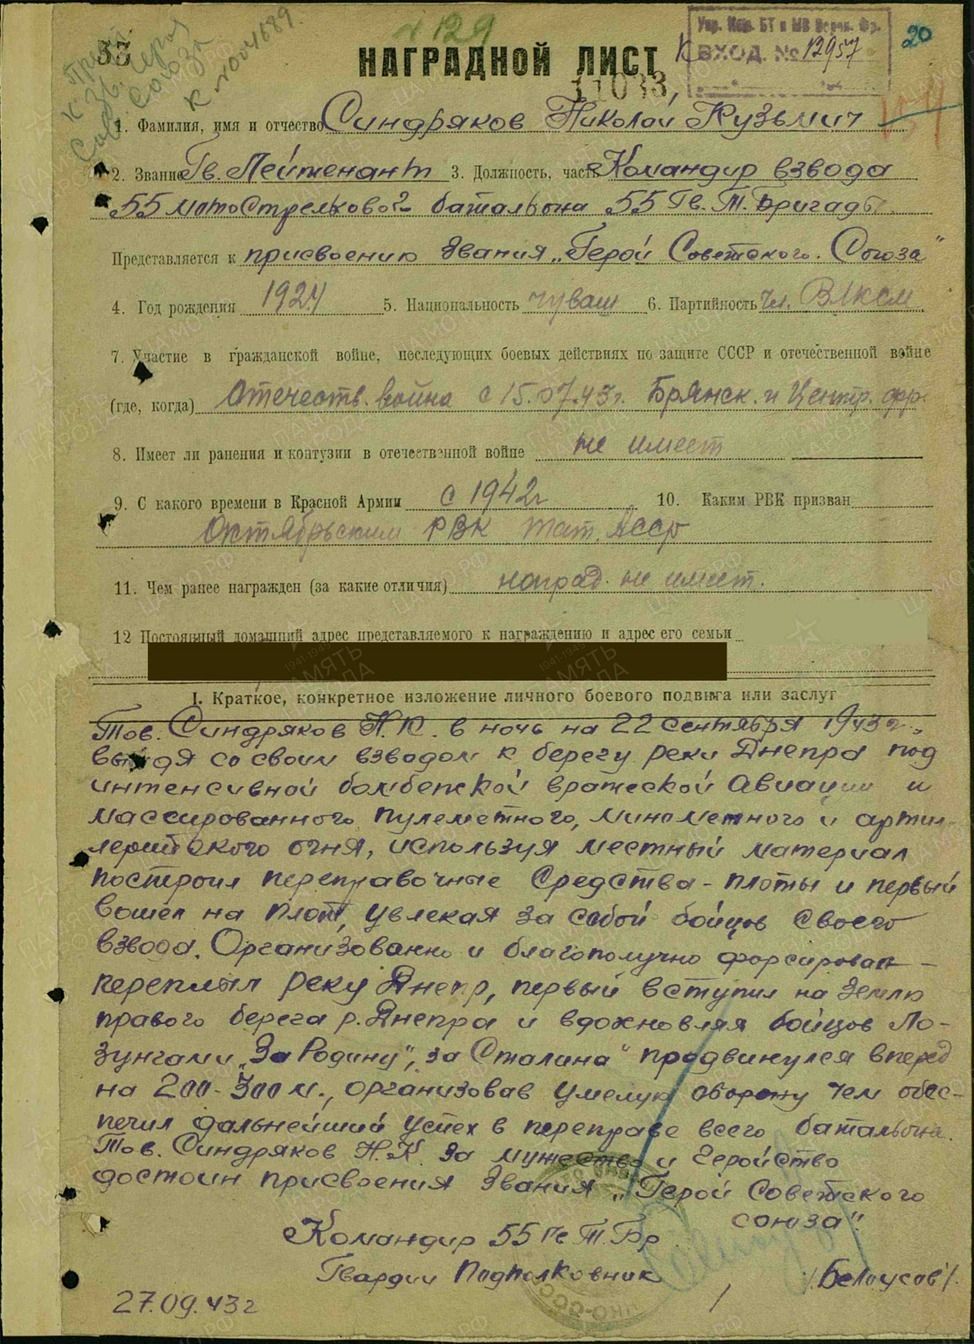 53
№129
Упр. Ком. БТ и МВ
ВХОД. № 12957
20
НАГРАДНОЙ ЛИСТ
11033
К пр.
Союза
К №004689.
1. Фамилия, имя и отчество Синдряков Николай Кузьмич
2. Звание Гв. Лейтенант 3. Должность, часть Командир взвода
55 мотострелкового батальона 55 Гв. Т. Бригады
Представляется к присвоению звания „Герой Советского Союза"
4. Год рождения 1924 5. Национальность чуваш 6. Партийность Чл. ВЛКСМ
7. Участие в гражданской войне, последующих боевых действиях по защите СССР и отечественной войне
(где, когда) Отечеств. война с 15.07.43г. Брянск. и Центр. фр.
8. Имеет ли ранения и контузии в отечественной войне не имеет
9. С какого времени в Красной Армии с 1942г 10. Каким РВК призван
Октябрьским РВК Тат. АССР
11. Чем ранее награжден (за какие отличия) наград. не имеет.
12 Постоянный домашний адрес представляемого к награждению и адрес его семьи
I. Краткое, конкретное изложение личного боевого подвига или заслуг
Тов. Синдряков Н.К. в ночь на 22 сентября 1943г.,
выйдя со своим взводом к берегу реки Днепра под
интенсивной бомбежкой вражеской Авиации и
массированного пулеметного, минометного и артил-
лерийского огня, используя местный материал
построил переправочные средства - плоты и первый
вошел на плот, увлекая за собой бойцов своего
взвода. Организованно и благополучно форсировал -
переплыл реку Днепр, первый вступил на землю
правого берега р. Днепра и вдохновляя бойцов Ло-
зунгами „За Родину", „за Сталина" продвинулся вперед
на 200-300 м., организовав умелую оборону чем обес-
печил дальнейший успех в переправе всего батальона.
Тов. Синдряков Н.К. за мужество и геройство
достоин присвоения звания „Герой Советского
союза".
Командир 55 Гв Т. Бр
Гвардии Подполковник /Белоусов/.
27.09.43г